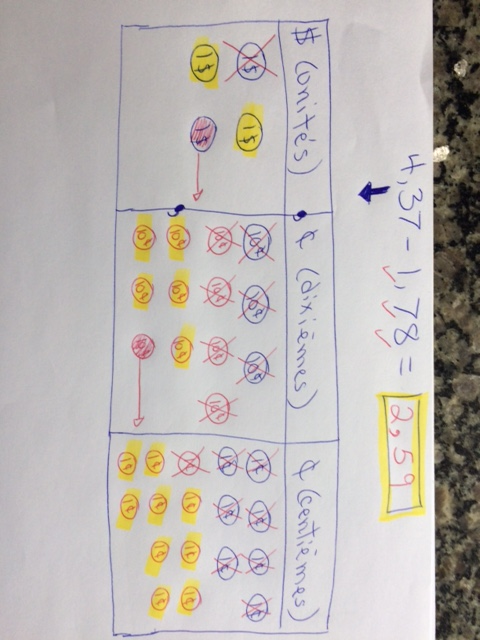 4,37 - 1,78 = 2,59
$ (unités) ¢ (dixièmes) ¢ (centièmes)
1$ 1$
1$ 1$
10¢ 10¢ 10¢
10¢ 10¢ 10¢ 10¢
10¢ 10¢ 10¢
10¢ 10¢ 10¢
1¢ 1¢ 1¢ 1¢
1¢ 1¢ 1¢
1¢ 1¢ 1¢ 1¢
1¢ 1¢ 1¢ 1¢
1¢ 1¢